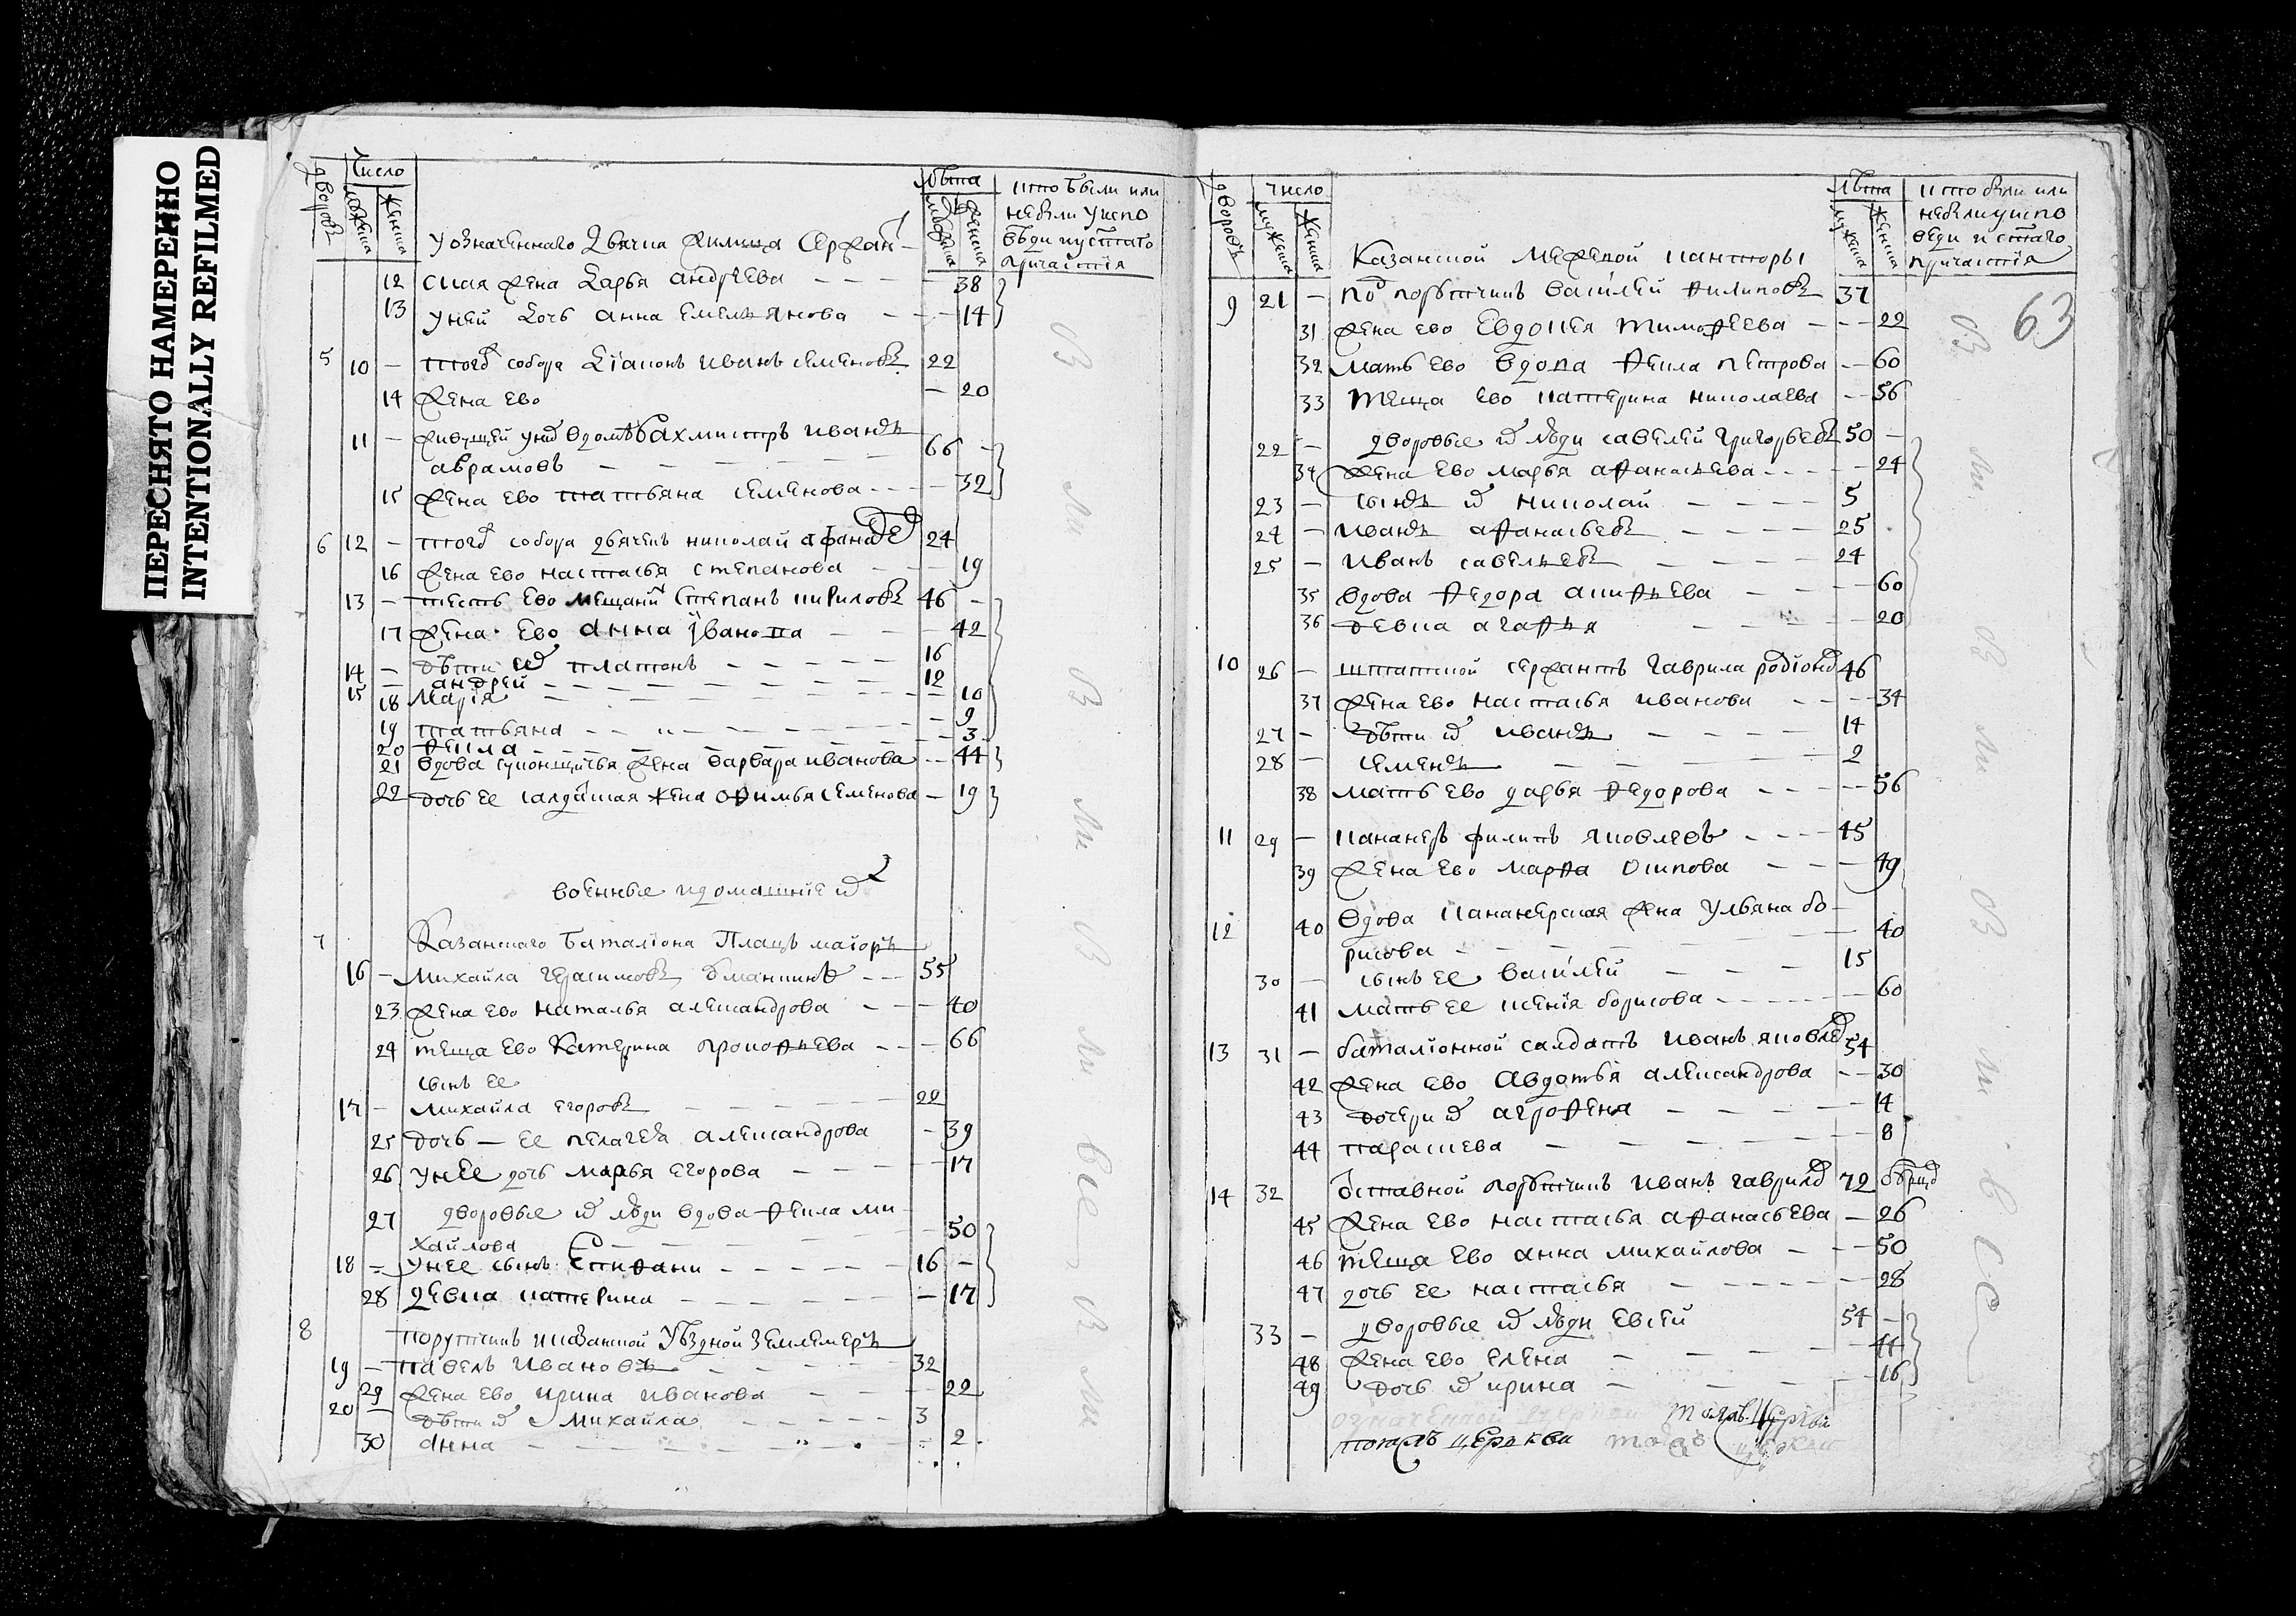 ПЕРЕСНЯТО НАМЕРЕННО
INTENTIONALLY REFILMED
дворовъ
Число
мужеска
женска
лѣта
мужеска
женска
кто были или
небыли уиспо
вѣди исвятаго
причастія
уозначеннаго дьячка жилица сержан
12 ская жена дарья андреева — 38
13 уней дочь анна емельянова — 14
5 10 — тогожъ собора діаконъ иванъ семеновъ 22
14 жена ево — 20
11 — живущей унихъ вдомѣ вахмистръ иванъ
аврамовъ — 66
15 жена ево татьяна семенова — 32
6 12 — тогожъ собора дьячекъ николай афанасьевъ 24
16 жена ево настасья степанова — 19
13 — тесть ево мещанинъ степанъ кириловъ 46
17 жена ево анна иванова — 42
14 — дѣти ихъ платонъ — 16
15 — андрей — 12
18 марія — 10
19 татьяна — 9
20 фекла — 3
21 вдова жена варвара иванова — 44
22 дочь ее салдатская жена офимья семенова — 19
военные идомашніе ихъ
7 Казанскаго баталіона Плацъ маіоръ
16 — михайла герасимовъ — 55
23 жена ево наталья александрова — 40
24 теща ево катерина прокофьева — 66
сынъ ее
17 — михайла егоровъ — 22
25 дочь — ее пелагея александрова — 39
26 унее дочь марья егорова — 17
27 дворовые ихъ люди вдова фекла ми
хайлова — 50
18 — унее сынъ епифани — 16
28 девка катерина — 17
8 порутчикъ иказанской уѣздной землемеръ
19 — павелъ ивановъ — 32
29 жена ево ирина иванова — 22
20 — дѣти ихъ михайла — 3
30 анна — 2
дворовъ
число
мужеска
женска
лѣта
мужеска
женска
кто были или
небыли уиспо
веди и святаго
причастія
63
Казанской межевой канторы
9 21 — подпорутчикъ василей филиповъ 37
31 жена ево евдокея тимофеева — 22
32 мать ево вдова фекла петрова — 60
33 теща ево катерина николаева — 56
22 — дворовые ихъ люди савелей григорьевъ 50
34 жена ево марья афанасьева — 24
23 — сынъ ихъ николай — 5
24 — иванъ афанасьевъ — 25
25 — иванъ савельевъ — 24
35 вдова федора — 60
36 девка агафья — 20
10 26 — штатской сержантъ гаврила родіоновъ 46
37 жена ево настасья иванова — 34
27 — дѣти ихъ иванъ — 14
28 — семенъ — 2
38 мать ево дарья федорова — 56
11 29 — кананеръ филипъ яковлевъ — 45
39 жена ево марфа осипова — 49
12 40 вдова кананерская жена ульяна бо
рисова — 40
30 — сынъ ее василей — 15
41 мать ее ксенія борисова — 60
13 31 — баталіонной салдатъ иванъ яковлевъ 54
42 жена ево авдотья александрова — 30
43 дочери ихъ агрофена — 14
44 параскева — 8
14 32 отставной порутчикъ иванъ гавриловъ 72
45 жена ево настасья афанасьева — 26
46 теща ево анна михайлова — 50
47 дочь ее настасья — 28
33 — дворовые ихъ люди евсей 54
48 жена ево елена — 44
49 дочь ихъ ирина — 16
церкви